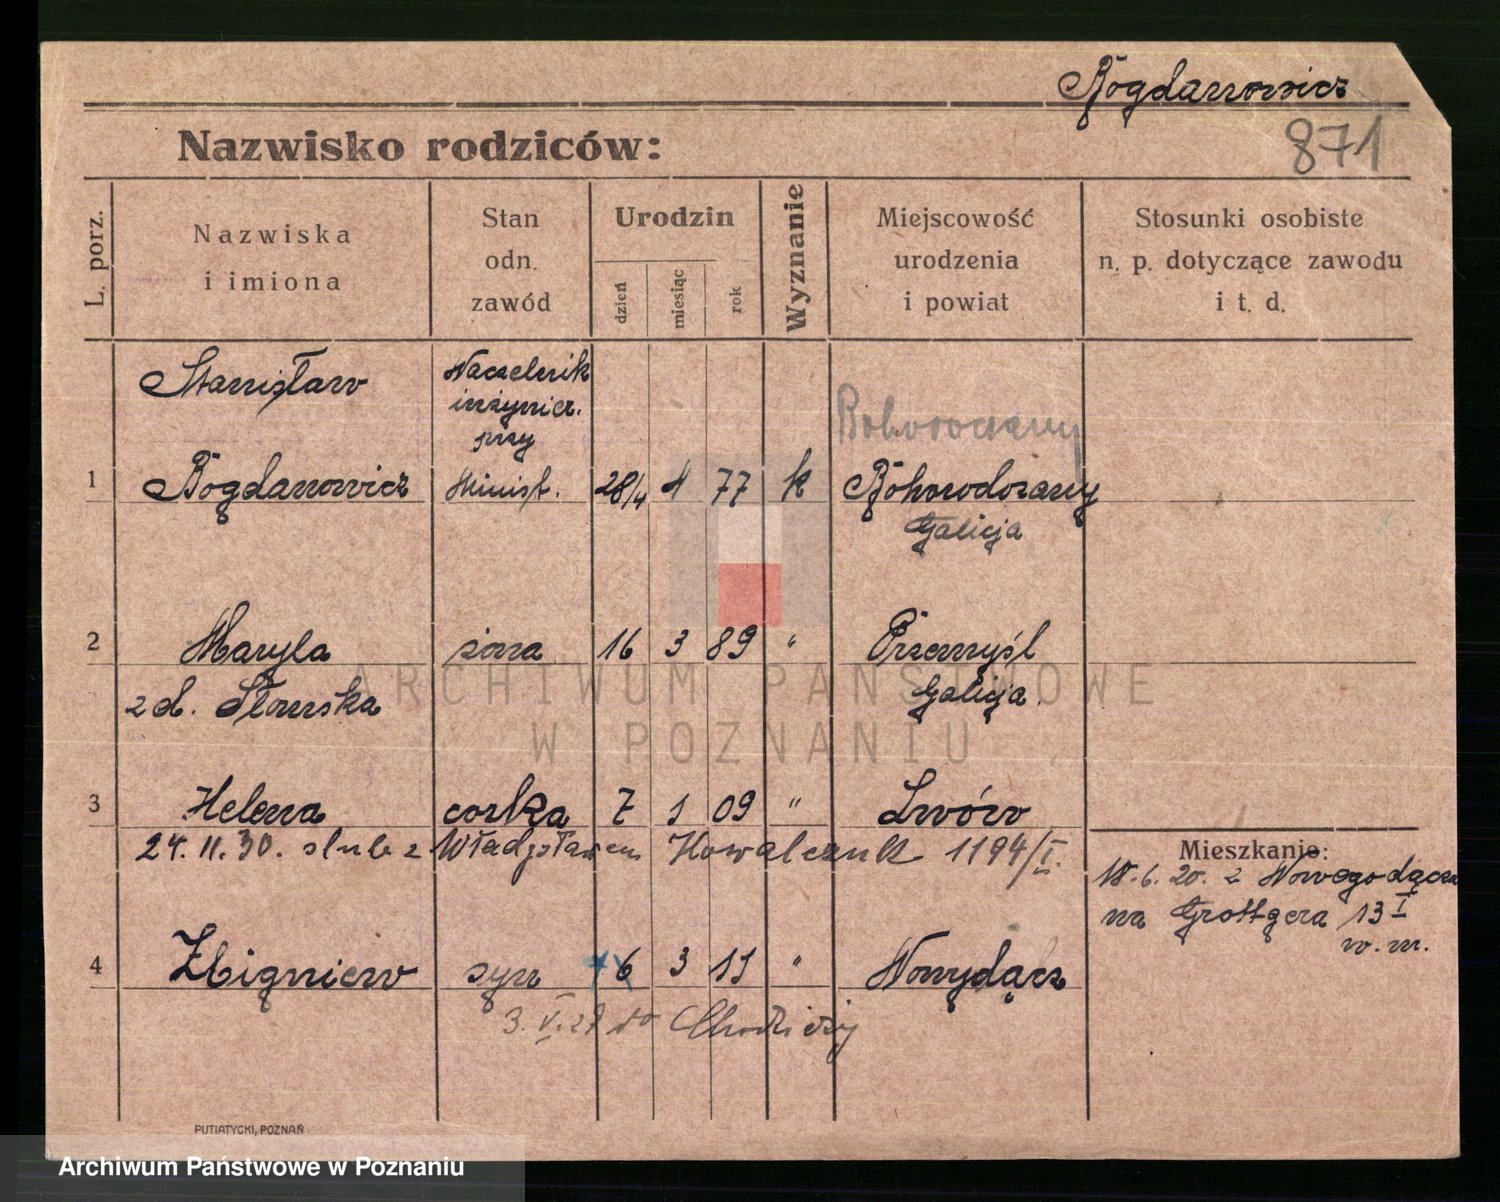 Bogdanowicz
871
Nazwisko rodziców:
L. porz.
Nazwiska
i imiona
Stan
odn.
zawód
Urodzin
dzień
miesiąc
rok
Wyznanie
Miejscowość
urodzenia
i powiat
Stosunki osobiste
n. p. dotyczące zawodu
i t. d.
Stanisław
Naczelnik
inżynier.
przy
Bohorodczany
1 Bogdanowicz Minist. 28/4 4 77 k Bohorodczany
Galicja
2 Maryla żona 16 3 89 " Przemyśl
z d. Słomska Galicja
ARCHIWUM PAŃSTWOWE
W POZNANIU
3 Helena corka 7 1 09 " Lwów
24. 11. 30. slub z Władysławem Kowalczuk 1194/I.
Mieszkanie:
15.6.20. z Nowego Sącza
na Grottgera 13 I
w. m.
4 Zbigniew syn 6 3 11 " Nowy Sącz
3. V. 28 do Chodzieży
PUTIATYCKI, POZNAŃ
Archiwum Państwowe w Poznaniu